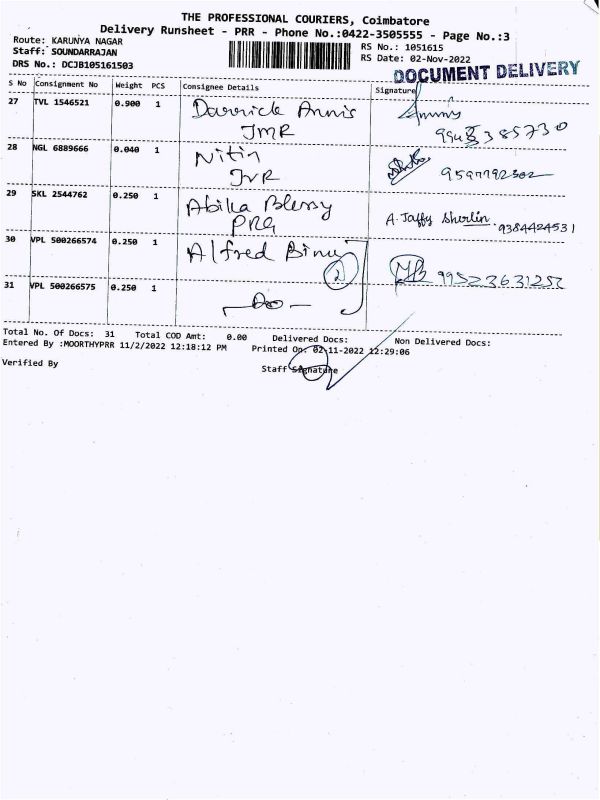 THE PROFESSIONAL COURIERS, Coimbatore
Delivery Runsheet - PRR - Phone No.:0422-3505555 - Page No.:3
Route: KARUNYA NAGAR
Staff: SOUNDARRAJAN
DRS No.: DCJB105161503
RS No.: 1051615
RS Date: 02-Nov-2022
DOCUMENT DELIVERY
S No Consignment No Weight PCS Consignee Details Signature
27 TVL 1546521 0.900 1 Darrick Annis
JMR
28 NGL 6889666 0.040 1 Nitin
JVR
29 SKL 2544762 0.250 1 Abika Blessy
PRG
A. Jaffy Sherlin 9384424531
30 VPL 500266574 0.250 1 Alfred Binu
2
31 VPL 500266575 0.250 1 -Do-
Total No. Of Docs: 31 Total COD Amt: 0.00 Delivered Docs: Non Delivered Docs:
Entered By :MOORTHYPRR 11/2/2022 12:18:12 PM Printed On: 02-11-2022 12:29:06
Verified By
Staff Signature